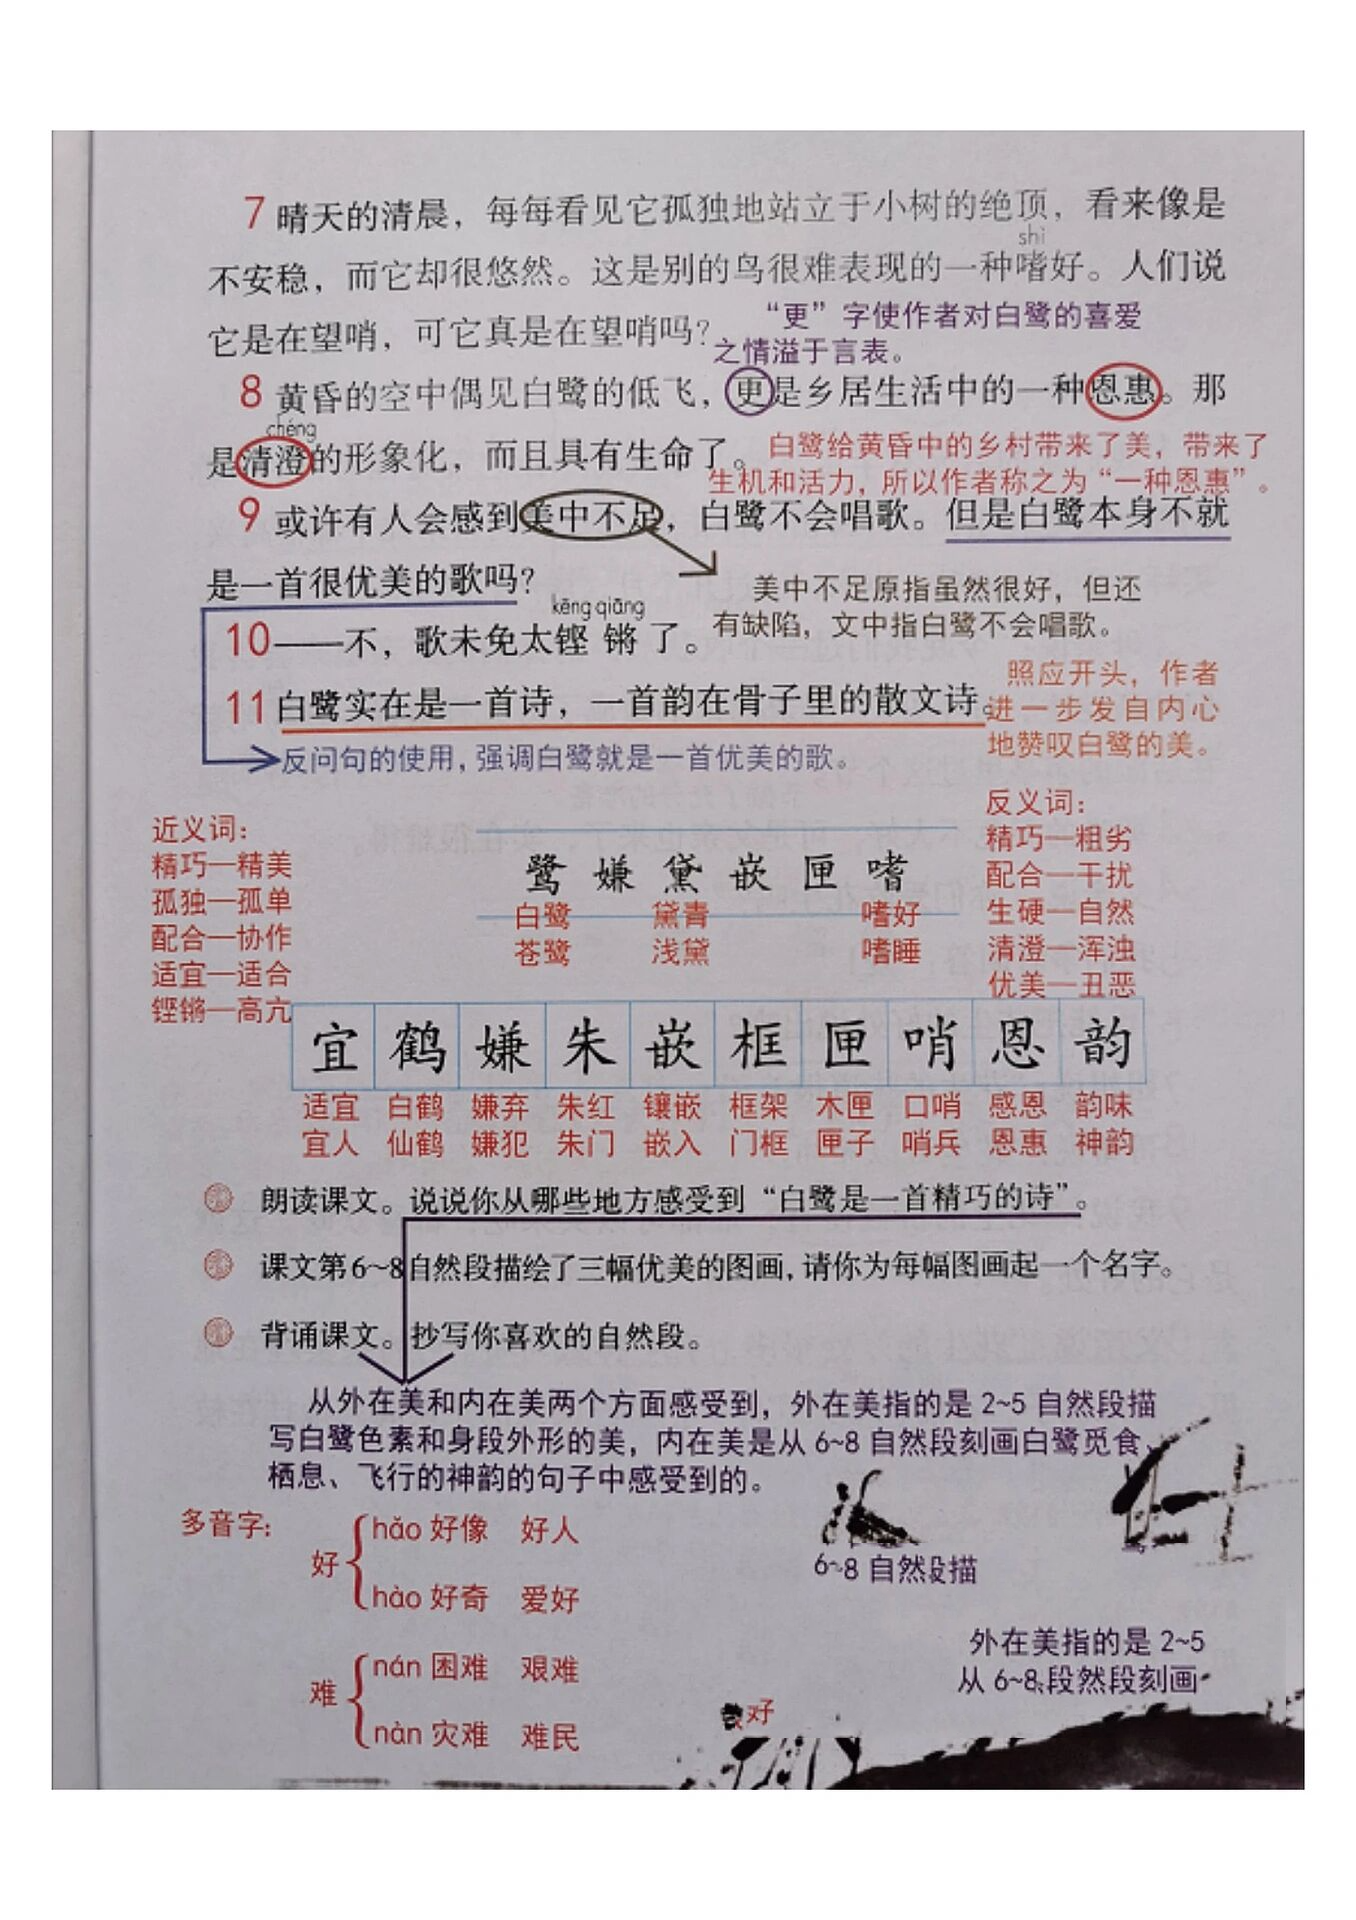 7 晴天的清晨，每每看见它孤独地站立于小树的绝顶，看来像是
shì
不安稳，而它却很悠然。这是别的鸟很难表现的一种嗜好。人们说
“更”字使作者对白鹭的喜爱
它是在望哨，可它真是在望哨吗？
之情溢于言表。
8 黄昏的空中偶见白鹭的低飞，更是乡居生活中的一种恩惠。那
chéng
是清澄的形象化，而且具有生命了。
白鹭给黄昏中的乡村带来了美，带来了
生机和活力，所以作者称之为“一种恩惠”。
9 或许有人会感到美中不足，白鹭不会唱歌。但是白鹭本身不就
是一首很优美的歌吗？
美中不足原指虽然很好，但还
有缺陷，文中指白鹭不会唱歌。
kēng qiāng
10 ——不，歌未免太铿锵了。
11 白鹭实在是一首诗，一首韵在骨子里的散文诗。
照应开头，作者
进一步发自内心
地赞叹白鹭的美。
反问句的使用，强调白鹭就是一首优美的歌。
近义词：
精巧—精美
孤独—孤单
配合—协作
适宜—适合
铿锵—高亢
鹭 嫌 黛 嵌 匣 嗜
白鹭 黛青 嗜好
苍鹭 浅黛 嗜睡
反义词：
精巧—粗劣
配合—干扰
生硬—自然
清澄—浑浊
优美—丑恶
宜 鹤 嫌 朱 嵌 框 匣 哨 恩 韵
适宜 白鹤 嫌弃 朱红 镶嵌 框架 木匣 口哨 感恩 韵味
宜人 仙鹤 嫌犯 朱门 嵌入 门框 匣子 哨兵 恩惠 神韵
朗读课文。说说你从哪些地方感受到“白鹭是一首精巧的诗”。
课文第6~8自然段描绘了三幅优美的图画，请你为每幅图画起一个名字。
背诵课文。抄写你喜欢的自然段。
从外在美和内在美两个方面感受到，外在美指的是2~5自然段描
写白鹭色素和身段外形的美，内在美是从6~8自然段刻画白鹭觅食、
栖息、飞行的神韵的句子中感受到的。
多音字：
好
hǎo 好像 好人
hào 好奇 爱好
难
nán 困难 艰难
nàn 灾难 难民
6~8 自然段描
外在美指的是 2~5
从 6~8 段然段刻画
好